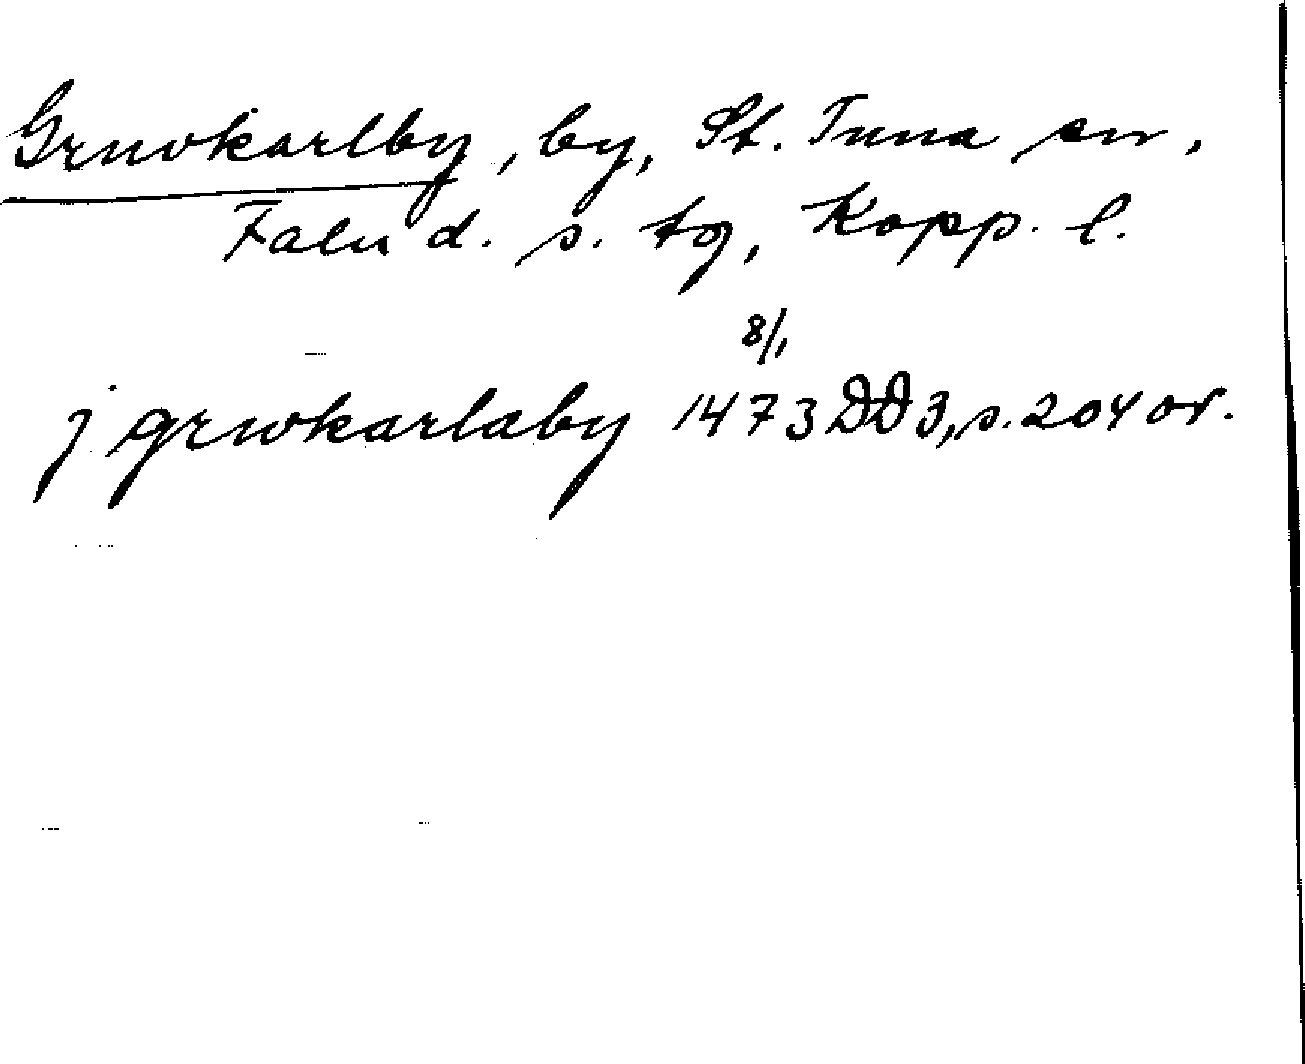 Gruvkarlby, by, St. Tuna sn,
Falu d. s. tg, Kopp. l.
8/1
j grwkarlaby 1473 DD3, s. 204 or.